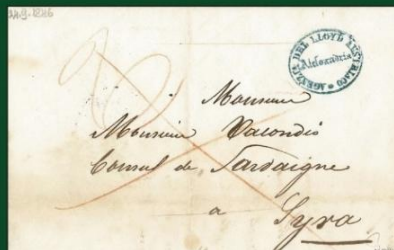 AGENZIA DEL LLOYD AUSTRIACO
Alexandria
Monsieur
Monsieur Vacondio
Consul de Sardaigne
a
Syra